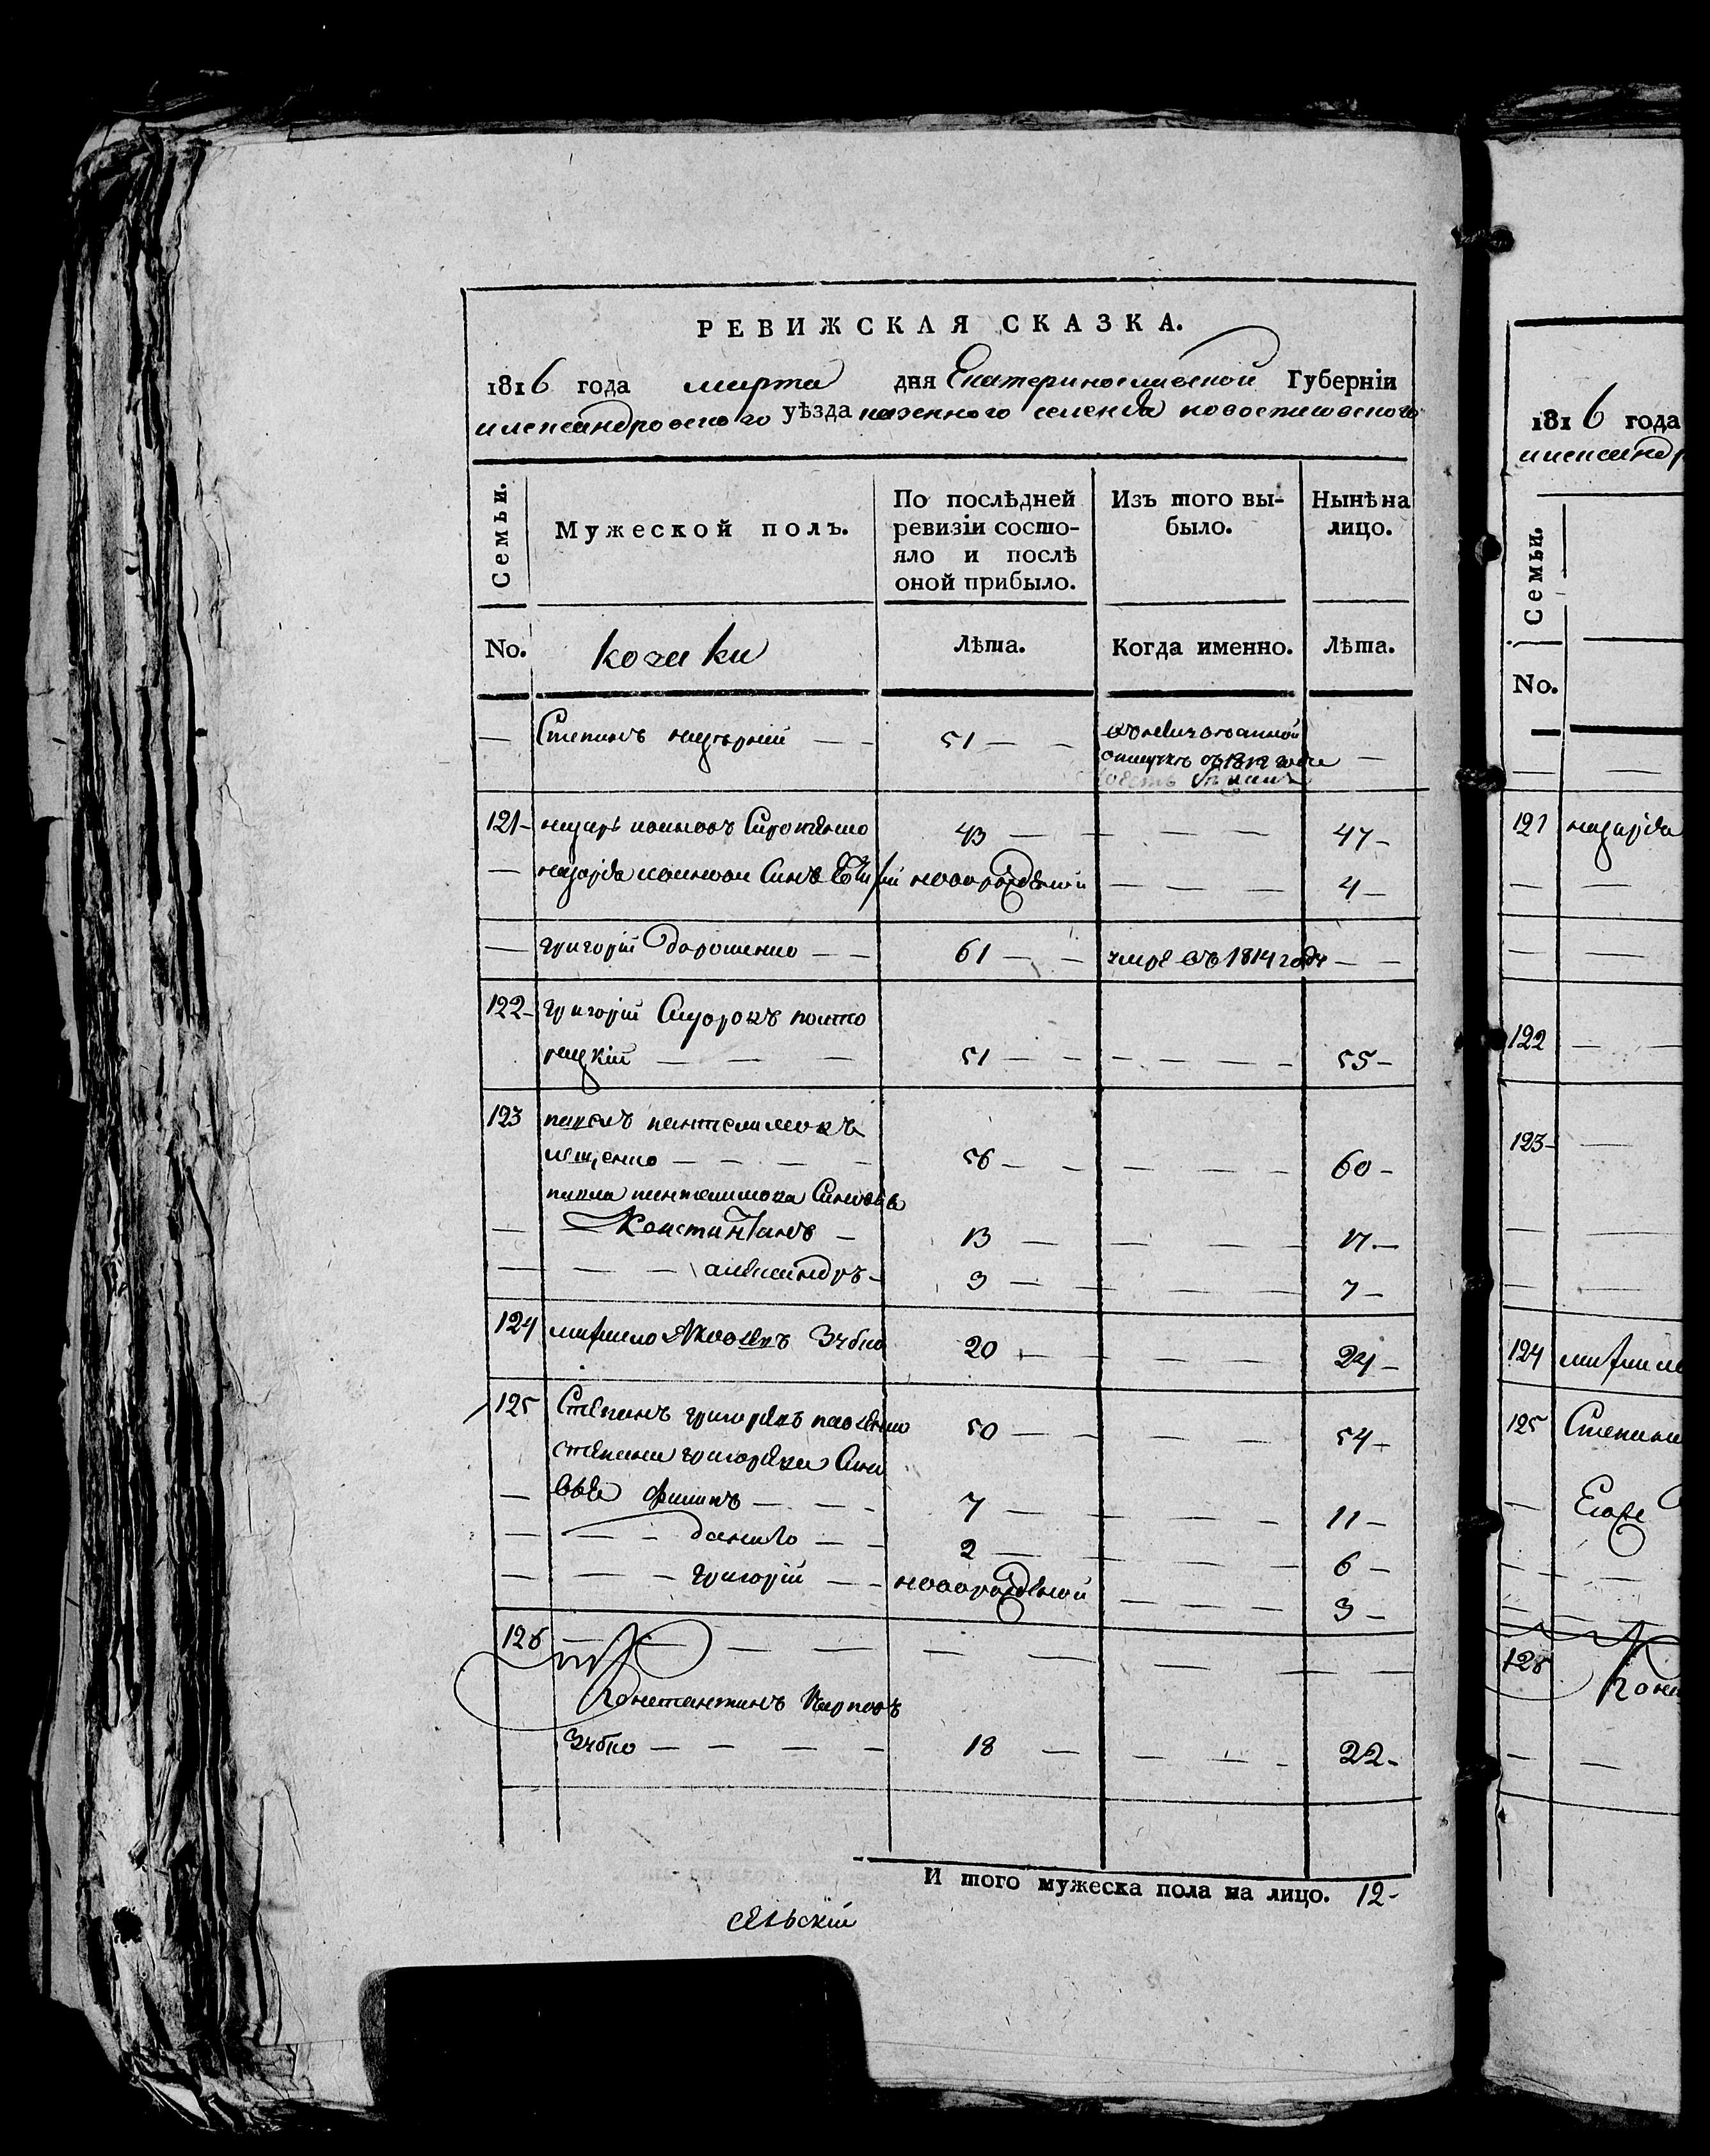 РЕВИЖСКАЯ СКАЗКА.
1816 года марта дня Екатеринославской Губерніи
александровского уѣзда казенного селенія
Семьи.
Мужеской полъ.
По послѣдней ревизіи состо-
яло и послѣ
оной прибыло.
Изъ того вы-
было.
Нынѣ на
лицо.
No.
козаки
Лѣта.
Когда именно.
Лѣта.
— Степанъ — — 51 — —
въ 1812 годе
121 — назаръ ивановъ 43 — — — — 47 —
— назара иванова Синъ новорожденой — — — 4 —
— григорій дорошенко — — 61 — — умре въ 1814 году — —
122 — григорій
— — — 51 — — — — — — 55 —
123 павелъ пантелимоновъ
ищенко — — — — 56 — — — — — 60 —
павла пантелимонова Синовя
— Константинъ — 13 — — — — 17 —
— — — александръ — 3 — — — — 7 —
124 михаило Яковлевъ Зубко 20 — — — — — 24 —
125 Степанъ григоревъ павленко 50 — — — — — 54 —
степана григорева Сино
— вья филипъ — — — 7 — — — — 11 —
— — — данило — — 2 — — — — 6 —
— — — григорій — — новорожденой — — — — 3 —
126 — — — — — — — —
Константинъ Карповъ
Зубко — — — — 18 — — — — 22 —
И того мужеска пола на лицо. 12 —
селскій
1816 года
Семьи.
No.
121 назара
122 — —
123 —
124
125 Степана
126